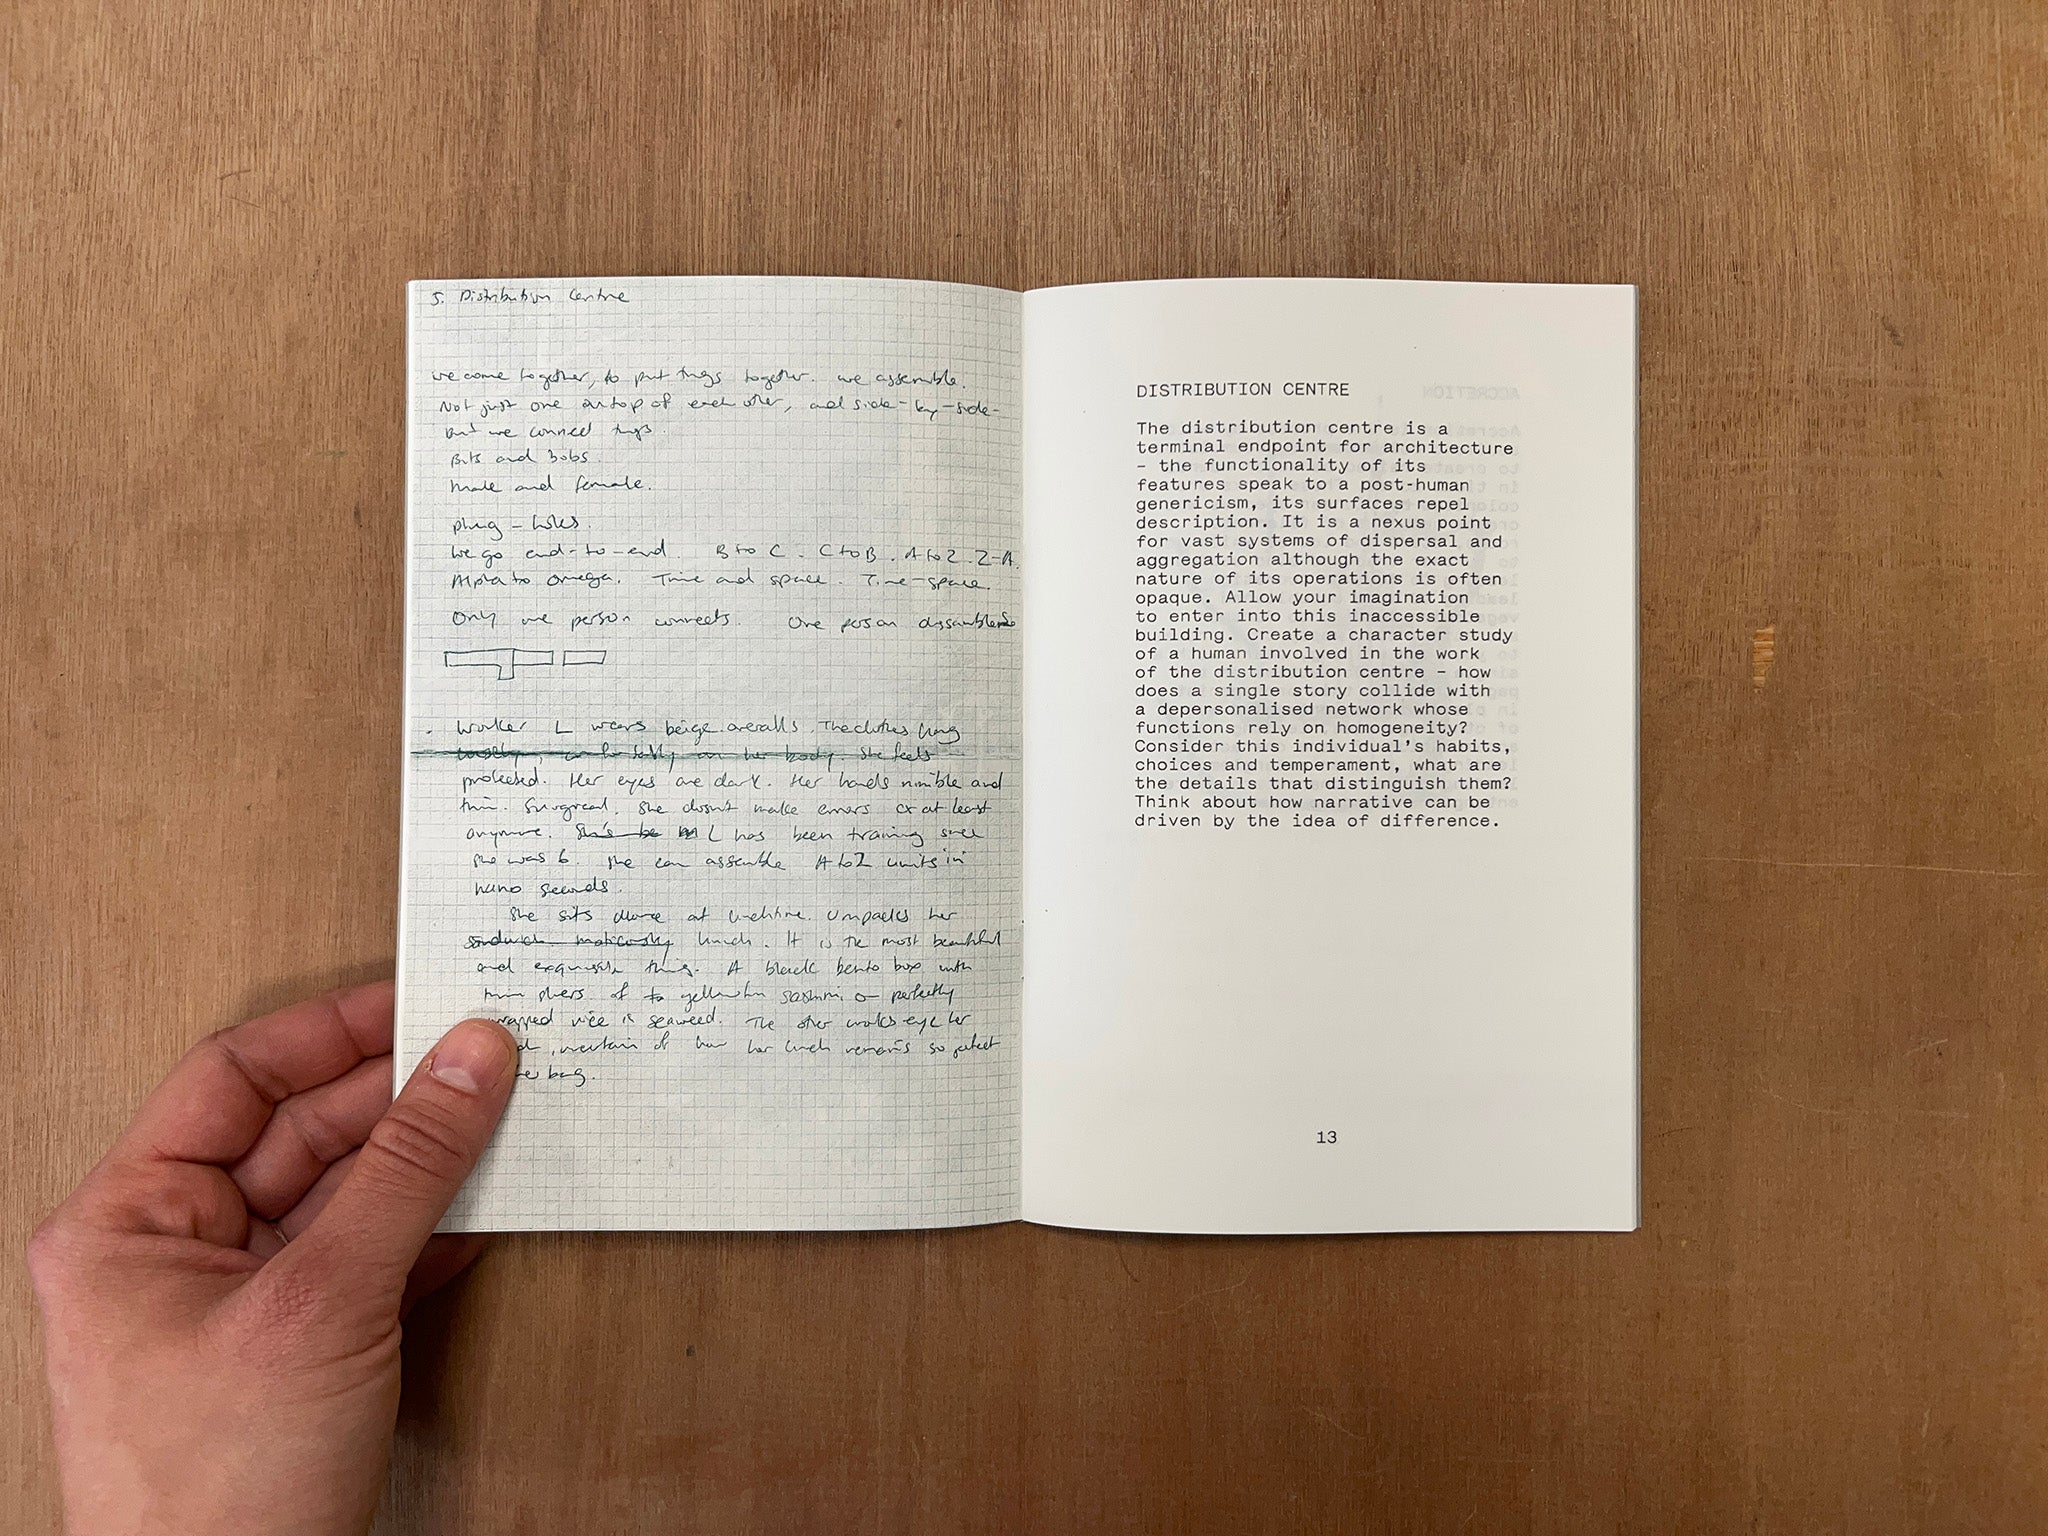 5. Distribution Centre
we come together, to put things together. we assemble.
Not just one ontop of each other, and side-by-side-
But we connect things.
Bits and bobs.
Male and female.
plug-holes.
We go end-to-end. B to C. C to B. A to Z. Z-A.
Alpha to omega. Time and space. Time-space.
Only one person connects. One person dissembles
Worker L wears beige overalls. The clothes hang
on her body. She feels
protected. Her eyes are dark. Her hands nimble and
thin. Surgical. She doesn't make errors or at least
anymore. She's be L has been training since
she was 6. She can assemble A to Z units in
nano seconds.
She sits alone at lunchtime. Unpacks her
sandwich lunch. It is the most beautiful
and exquisite thing. A black bento box with
thin of sashimi or perfectly
wrapped rice in seaweed. The other workers eye her
, uncertain of how her lunch remains so perfect
her bag.
DISTRIBUTION CENTRE
The distribution centre is a
terminal endpoint for architecture
– the functionality of its
features speak to a post-human
genericism, its surfaces repel
description. It is a nexus point
for vast systems of dispersal and
aggregation although the exact
nature of its operations is often
opaque. Allow your imagination
to enter into this inaccessible
building. Create a character study
of a human involved in the work
of the distribution centre – how
does a single story collide with
a depersonalised network whose
functions rely on homogeneity?
Consider this individual's habits,
choices and temperament, what are
the details that distinguish them?
Think about how narrative can be
driven by the idea of difference.
13